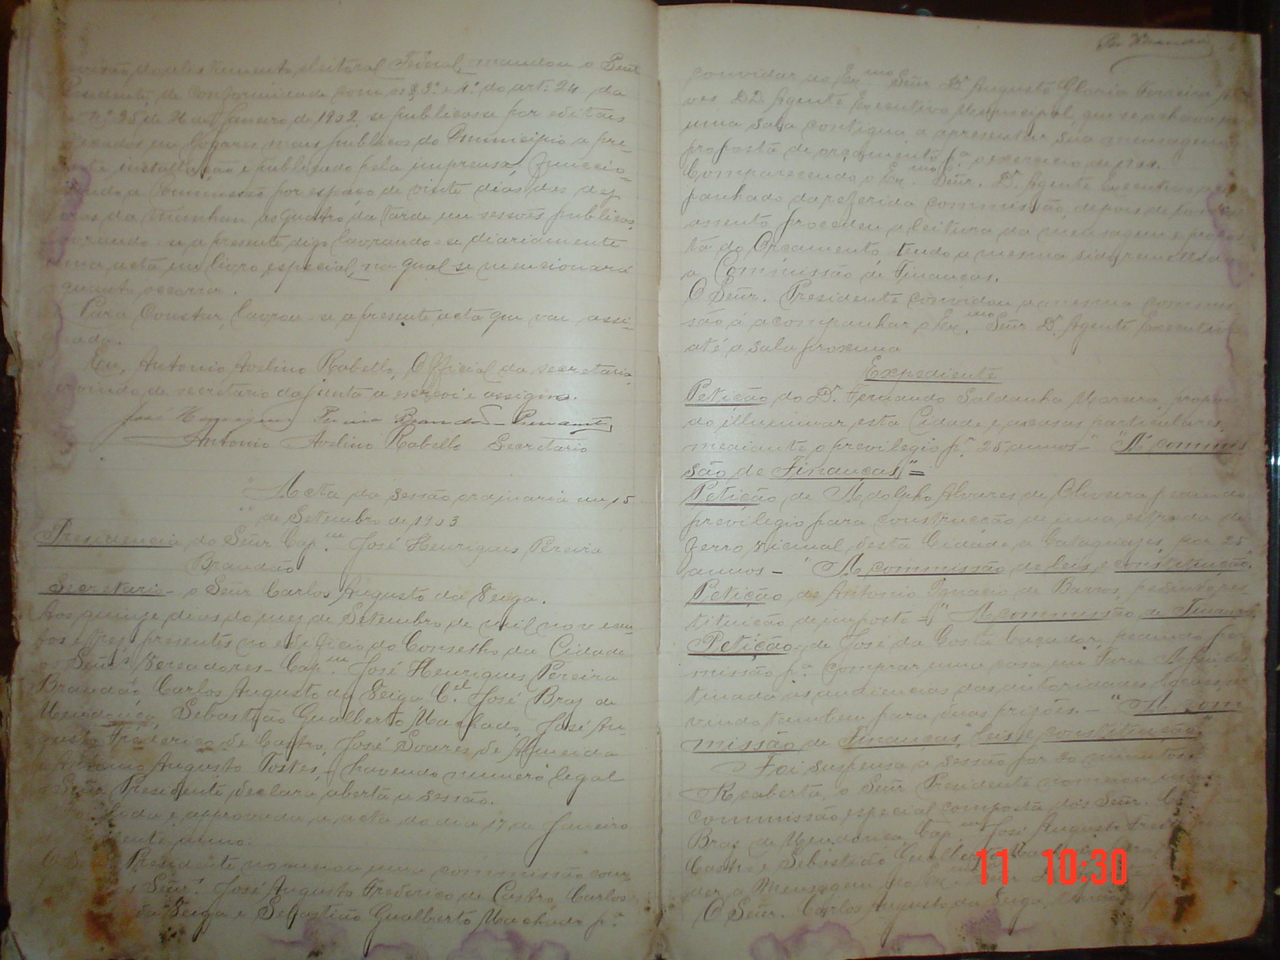 do alistamento eleitoral Federal, mandou o Señr
Presidente, de conformidade com os § 3º e 4º do art. 24 da
nº 35 de 26 de Janeiro de 1892, se publicasse por editaes
nos logares mais publicos do municipio a pre-
sente installação e publicado pela imprensa, funccio-
nando a Commissão por espaço de vinte dias, das dez
da manham ás quatro da tarde em sessões publicas,
lavrando-se a presente digo lavrando-se diariamente
uma acta em livro especial, no qual se mencionará
quanto occorrer.
Para Constar, lavrou-se a presente acta que vai assi-
gnada.
Eu, Antonio Avelino Rabello, Official da secretaria
servindo de secretario da junta a escrevi e assigno.
José Henriques Pereira Brandão - Presidente
Antonio Avelino Rabello Secretario
Acta da sessão ordinaria em 15
de Setembro de 1903
Presidencia do Señr Cap.m José Henriques Pereira
Brandão
Secretario - o Señr Carlos Augusto da Veiga.
Aos quinze dias do mez de Setembro de mil nove cen-
tos e trez presentes no edificio do Conselho da Cidade
os Señrs Vereadores - Cap.m José Henriques Pereira
Brandão, Carlos Augusto da Veiga, C.el José Braz de
Mendonça, Sebastião Gualberto Machado, José Au-
gusto Frederico de Castro, José Soares de Almeida
e Antonio Augusto Tostes, e havendo numero legal
o Señr Presidente declara aberta a sessão.
Lida e approvada a acta do dia 17 de Janeiro
O Señr Presidente nomeou uma commissão com
os Señrs José Augusto Frederico de Castro, Carlos
da Veiga e Sebastião Gualberto Machado p.a
convidar ao Ex.mo Señr Dr Augusto Gloria Ferreira
DD. Agente Executivo Municipal, que se achava em
uma sala contigua a apresentar sua mensagem e
proposta de orçamento p.a o exercicio de
Comparecendo o Ex.mo Señr. Dr. Agente Executivo acom-
panhado da referida commissão, depois de
assento procedeu a leitura da mensagem e propos-
ta do Orçamento, tendo a mesma sido remettida
a Commissão de Finanças.
O Señr. Presidente convidou a mesma commis-
são á acompanhar o Ex.mo Señr Dr. Agente Executivo
até a sala proxima
Expediente
Petição do Dr. Fernando Saldanha Moreira, propon-
do illuminar esta Cidade e as casas particulares,
mediante o previlegio p.r 25 annos - "A' commis-
são de Finanças" =
Petição de Adolpho Alvares de Oliveira pedindo
previlegio para construcção de uma estrada de
ferro vicinal desta Cidade a Cataguazes, por 25
annos - "A' commissão de leis e constituição".
Petição de Antonio Ignacio de Barros, pedindo res-
tituição de imposto - "A' commissão de Finanças"
Petição de José da Costa Caçador, pedindo per-
missão p.a comprar uma casa em des-
tinada as audiencias das autoridades locaes, ser-
vindo tambem para duas prizões. - "A' com-
missão de Finanças, leis e constituição"
Foi suspensa a sessão por 20 minutos.
Reaberta, o Señr Presidente nomeou uma
commissão especial composta dos Señr.
Braz de Mendonça, Cap.m José Augusto Fred
Castro e Sebastião Gualberto Machado
a Mensagem do Ex.mo
O Señr. Carlos Augusto da Veiga,
11 10:30